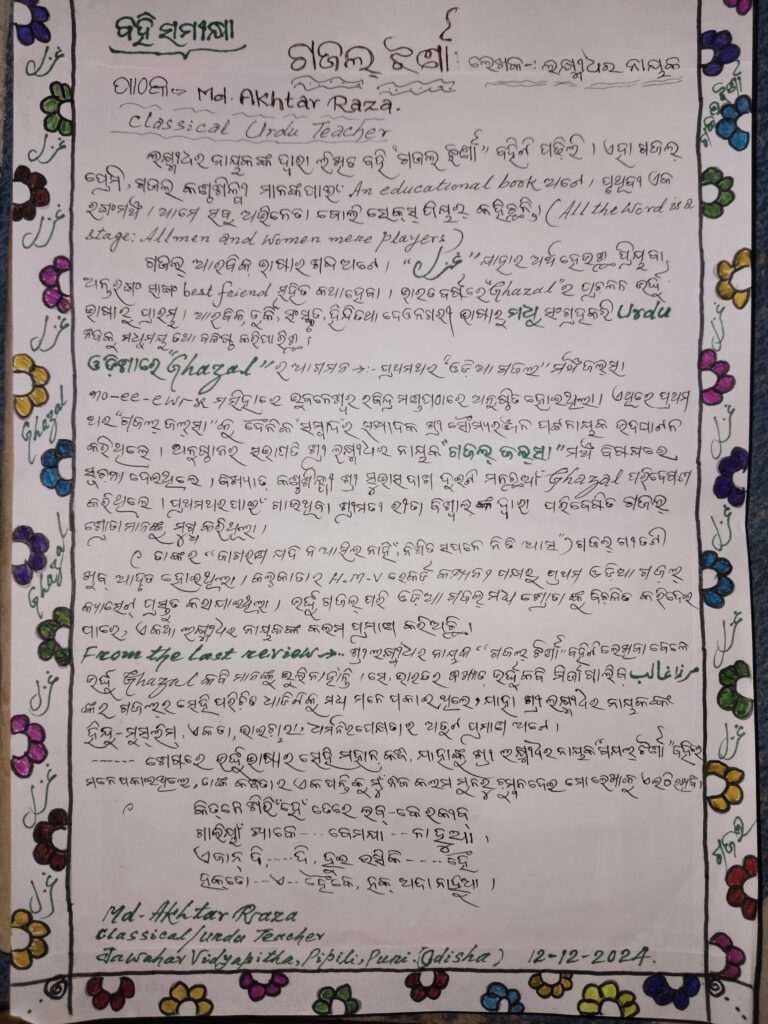 ବହି ସମୀକ୍ଷା
ଗଜଲ୍ ଝର୍ଣ୍ଣା: ଲେଖକ-: ଲକ୍ଷ୍ମୀଧର ନାୟକ
ପାଠକ:- Md. Akhtar Raza.
Classical Urdu Teacher
ଲକ୍ଷ୍ମୀଧର ନାୟକଙ୍କ ଦ୍ଵାରା ଲିଖିତ ବହି "ଗଜଲ୍ ଝର୍ଣ୍ଣା" ବହିଟି ପଢିଲି । ଏହା ଗଜଲ୍
ପ୍ରେମୀ, ଗଜଲ କଣ୍ଠଶିଳ୍ପୀ ମାନଙ୍କପାଇଁ An educational book ଅଟେ । ପୃଥିବୀ ଏକ
ରଙ୍ଗମଞ୍ଚ । ଆମେ ସବୁ ଅଭିନେତା ବୋଲି ସେକ୍ସପିୟର୍ କହିଛନ୍ତି । (All the Word is a
stage: All men and Women mere players)
ଗଜଲ୍ ଆରବିକ୍ ଭାଷାର ଶବ୍ଦ ଅଟେ । "غزل" ଯାହାର ଅର୍ଥ ହେଉଛି ପ୍ରିୟ ବା
ଅନ୍ତରଙ୍ଗ best friend ସହିତ କଥାହେବା । ଭାରତ ବର୍ଷରେ "Ghazal" ର ପ୍ରଚଳନ ଉର୍ଦ୍ଦୁ
ଭାଷାରୁ ପ୍ରାରମ୍ଭ । ଆରବିକ୍, ତୁର୍କି, ସଂସ୍କୃତ, ହିନ୍ଦି ତଥା ଦେଓନଗରୀ ଭାଷାରୁ ମଧୁ ସଂଗ୍ରହକରି Urdu
ନିଜକୁ ମଧୁମୟ ତଥା ବଳିଷ୍ଠ କରିପାରିଛି ।
ଓଡ଼ିଶାରେ "Ghazal" ର ଆଗମନ -:- ପ୍ରଥମଥର "ଓଡ଼ିଆ ଗଜଲ" ମଞ୍ଚ ଜଲ୍‌ସା
ମସିହାରେ ଭୁବନେଶ୍ଵର ରବିନ୍ଦ୍ର ମଣ୍ଡପଠାରେ ଅନୁଷ୍ଠିତ ହୋଇଥିଲା । ଏଥିରେ ପ୍ରଥମ
ଥର "ଗଜଲ୍ ଜଲ୍‌ସା" କୁ ଦୈନିକ ସମ୍ବାଦର ସମ୍ପାଦକ ଶ୍ରୀ ସୌମ୍ୟରଞ୍ଜନ ପଟ୍ଟନାୟକ ଉଦଘାଟନ
କରିଥିଲେ । ଅନୁଷ୍ଠାନର ସଭାପତି ଶ୍ରୀ ଲକ୍ଷ୍ମୀଧର ନାୟକ "ଗଜଲ୍ ଜଲ୍‌ସା" ମଞ୍ଚ ବିଷୟରେ
ସୂଚନା ଦେଇଥିଲେ । ବିଖ୍ୟାତ୍ କଣ୍ଠଶିଳ୍ପୀ ଶ୍ରୀ ସୁଭାସ ଦାଶ ଦୁଇଟି ମନଛୁଆଁ Ghazal ପରିବେଷଣ
କରିଥିଲେ । ପ୍ରଥମଥର ପାଇଁ ଗାଇଥିବା ଶ୍ରୀମତୀ ଗୀତା ଙ୍କ ଦ୍ଵାରା ପରିବେଷିତ ଗଜଲ୍
ଶ୍ରୋତାମାନଙ୍କୁ ମୁଗ୍ଧ କରିଥିଲା ।
(ତାଙ୍କର "ଜାଗରଣେ ଯଦି ନ ଆସିଲ ନାହିଁ, ନିଶିତ ସପନେ ନିତି ଆସ") ଗଜଲ୍ ଗୀତଟି
ଖୁବ୍ ଆଦୃତ ହୋଇଥିଲା । କଲକାତାର H.M.V ରେକର୍ଡ କମ୍ପାନୀ ପକ୍ଷରୁ ପ୍ରଥମ ଓଡିଆ ଗଜଲ୍
କ୍ୟାସେଟ୍ ପ୍ରସ୍ତୁତ କରାଯାଇଥିଲା । ଉର୍ଦ୍ଦୁ ଗଜଲ୍ ପରି ଓଡିଆ ଗଜଲ୍ ମଧ୍ୟ ଶ୍ରୋତାଙ୍କୁ ବିଚଳିତ କରିଦେଇ
ପାରେ, ଏକଥା ଲକ୍ଷ୍ମୀଧର ନାୟକଙ୍କ କଲମ ପ୍ରମାଣ କରିଅଛି ।
From the last review -: ଶ୍ରୀ ଲକ୍ଷ୍ମୀଧର ନାୟକ "ଗଜଲ୍ ଝର୍ଣ୍ଣା" ବହିଟି ଲେଖିବା ବେଳେ
ଉର୍ଦ୍ଦୁ Ghazal କବି ମାନଙ୍କୁ ଭୁଲିନାହାଁନ୍ତି । ସେ, ଭାରତର ଉର୍ଦ୍ଦୁ କବି ମିର୍ଜା ଗାଲିବ୍ مرزا غالب
ଙ୍କର ଗଜଲ୍‌ର ସେହି ପରିଚିତ ମଧ୍ୟ ମନେ ପକାଇ ଥିଲେ, ଯାହା ଶ୍ରୀ ଲକ୍ଷ୍ମୀଧର ନାୟକଙ୍କ
ହିନ୍ଦୁ-ମୁସ୍‌ଲିମ୍, ଏକତା, ଭାଇଚାରା, ଧର୍ମନିରପେକ୍ଷତାର ଅତୁଟ ପ୍ରମାଣ ଅଟେ ।
------ ଶେଷରେ ଉର୍ଦ୍ଦୁଭାଷାର ସେହି ମହାନ୍ କବି, ଯାହାଙ୍କୁ ଶ୍ରୀ ଲକ୍ଷ୍ମୀଧର ନାୟକ "ଗଜଲ୍ ଝର୍ଣ୍ଣା" ବହିରେ
ମନେପକାଇଥିଲେ, ତାଙ୍କ କବିତାର ଏକ ପଂକ୍ତିକୁ ମୁଁ ନିଜ କଲମ ମୁନରୁ ଚୁମ୍ବନ ଦେଇ ମୋ ଲେଖାକୁ
କିତନେ ଶିରିଁ ହେଁ ତେରେ ଲବ୍-କେ ରକୀବ୍
ଗାଲିୟାଁ ଖାକେ --- ବେମଜା -- ନା ହୁଆ ।
ଏଜାନ୍ ଦି,---- ଦି, ହୁଇ ଉସିକି ---- ହୈଁ
ହକତୋ --- ଏ-- ହୈକେ, ହକ୍ ଅଦା ନାହୁଆ ।
Md. Akhtar Raza
Classical/Urdu Teacher
Jawahar Vidyapitha, Pipili, Puri. (Odisha) 12-12-2024.
غزل
غزل
غزل
غزل
غزل
Ghazal
Ghazal
Ghazal
غزل
غزل
غزل
غزل
ଗଜଲ ଝର୍ଣ୍ଣା
غزل
غزل
غزل
غزل
غزل
غزل
ଗଜଲ